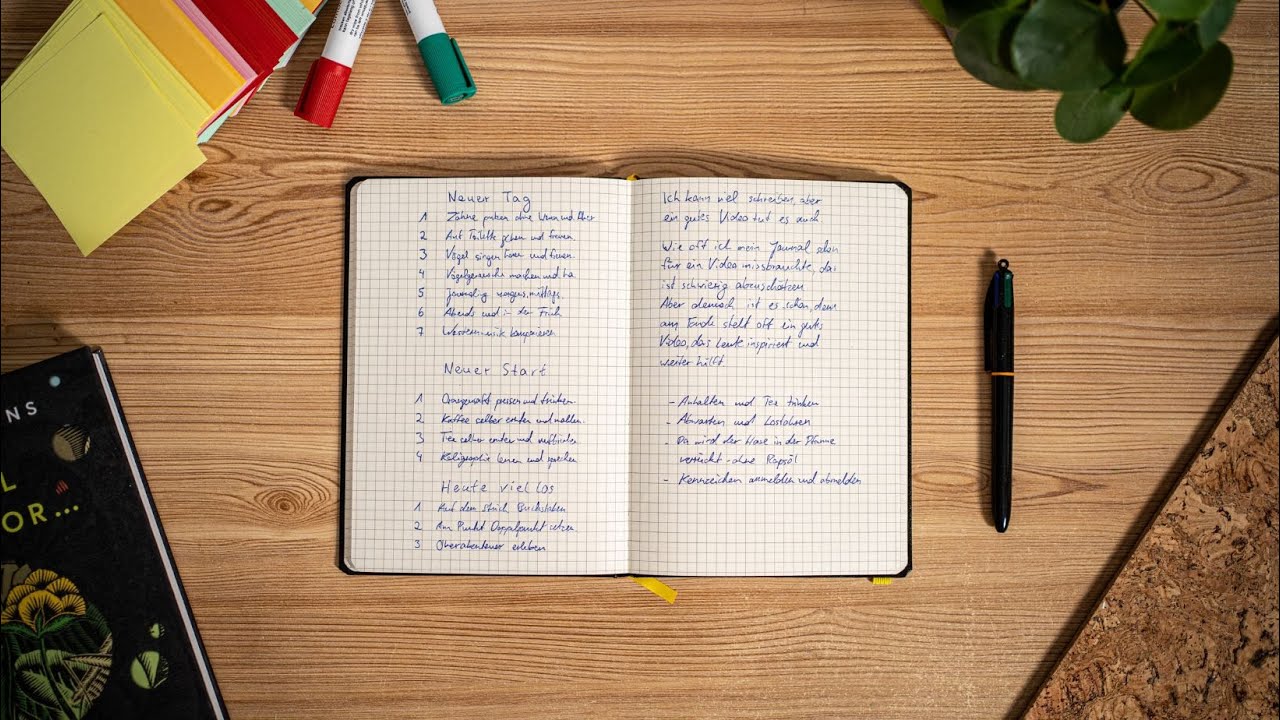 NS
L
OR...
Neuer Tag
1 Zähne putzen ohne Wenn und Aber
2 Auf Toilette gehen und freuen.
3 Vögel singen hören und freuen.
4 Vogelgeräusche machen und
5 Journaling morgens, mittags,
6 Abends und in der Früh
7 komponieren
Neuer Start
1 Orangensaft pressen und trinken.
2 Kaffee selber ernten und mahlen.
3 Tee selber ernten und
4 Kaligraphie lernen und sprechen
Heute viel los
1 Auf dem Strich Buchstaben
2 Am Punkt Doppelpunkt setzen.
3 Oberabenteuer erleben
Ich kann viel schreiben, aber
ein gutes Video tut es auch
Wie oft ich mein Journal schon
für ein Video missbrauchte, das
ist schwierig abzuschätzen
Aber dennoch ist es schön, denn
am Ende steht oft ein gutes
Video, das Leute inspiriert und
weiter hilft.
- Anhalten und Tee trinken
- Abwarten und Losfahren
- Da wird der Hase in der Pfanne
verrückt - ohne Rapsöl
- Kennzeichen anmelden und abmelden